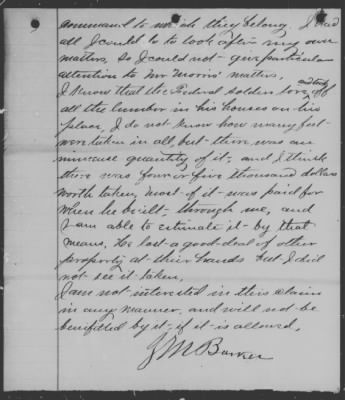 command to which they belong. I had
all I could to to look after my own
matters, so I could not give particular
attention to Mr Morris' matters,
I know that the Federal soldiers tore off and took
all the lumber in his houses on his
place, I do not know how many feet
were taken in all, but there was an
immense quantity of it, and I think
there was four or five thousand dollars
worth taken, most of it was paid for
when he built, through me, and
I am able to estimate it by that
means. He lost a good deal of other
property at their hands but I did
not see it taken.
I am not interested in this claim
in any manner, and will not be
benefitted by it, if it is allowed.
J M Barker